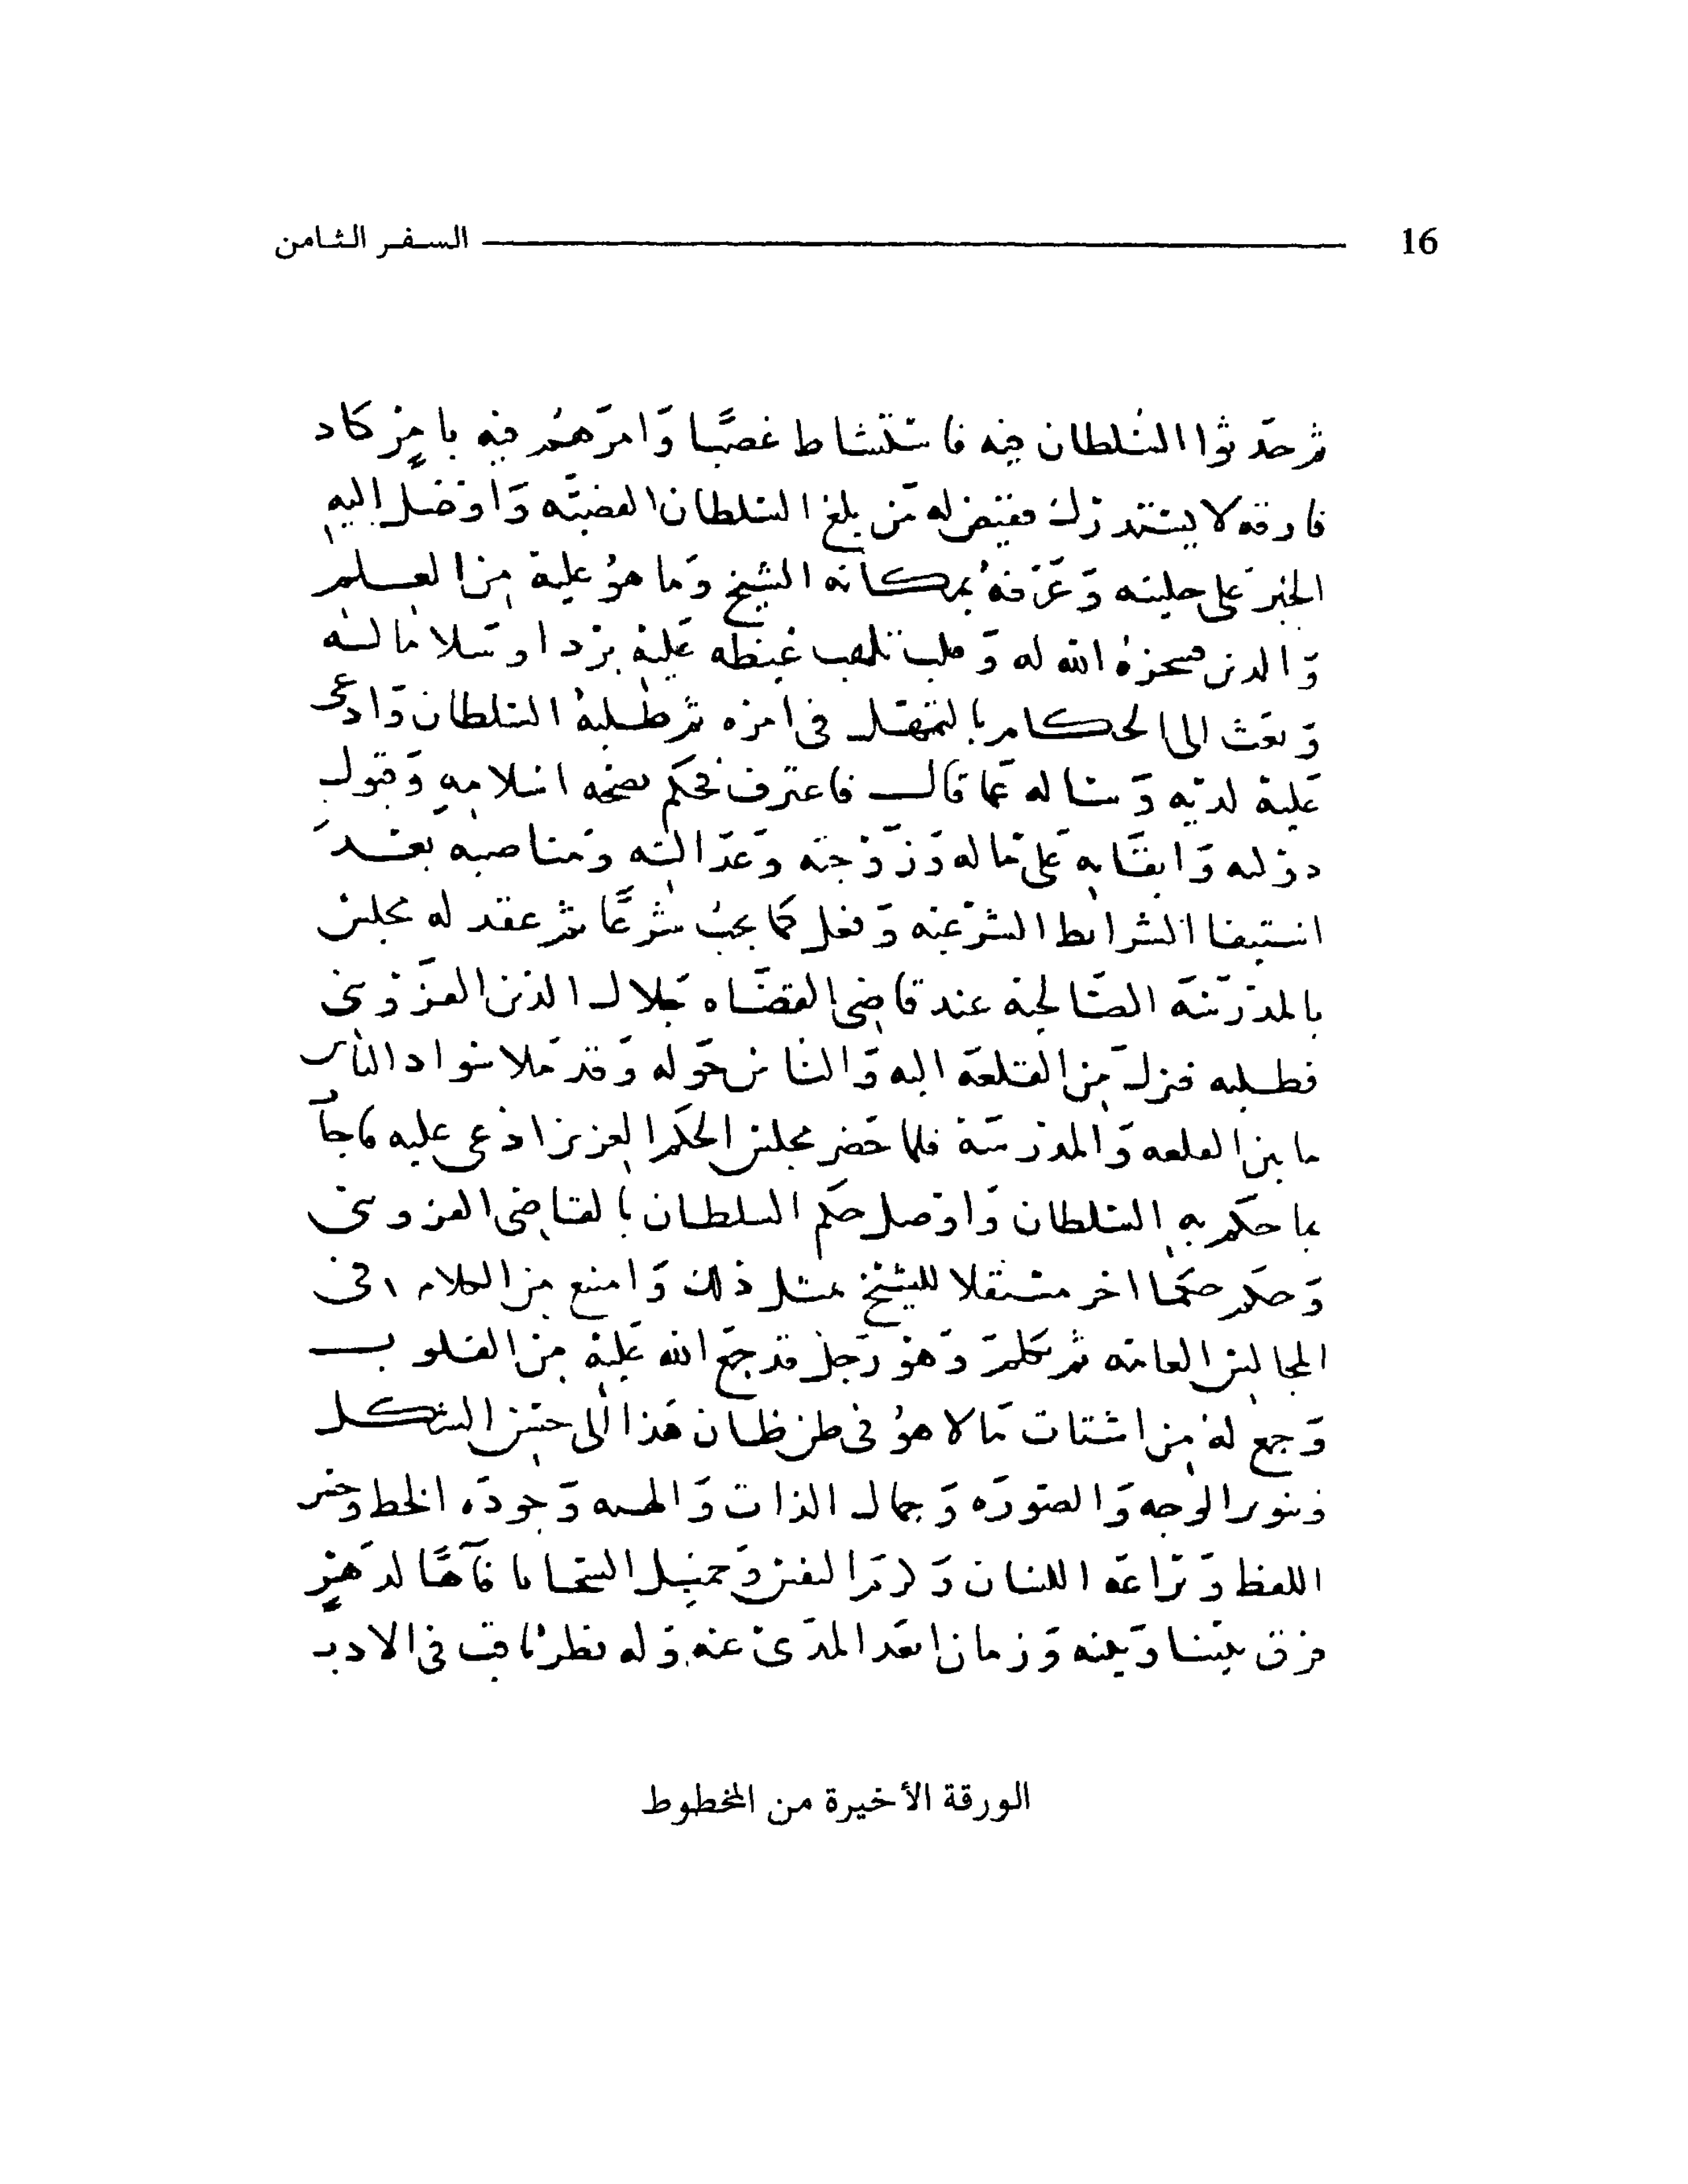 16 السفر الثامن
ثم حدثوا السلطان فيه فاستشاط غضبا وامرهم فيه بامر كاد
فارقه لا يستدرك فقيض له من بلغ السلطان القضية واوصل اليه
الخبر على جليته وعرفه بمكانة الشيخ وما هو عليه من العلم
والدين سخره الله له وقلب تلهب غيظه عليه بردا وسلاما له
وبعث الى الحكام بالتمهل في امره ثم طلبه السلطان وادعى
عليه لديه وساله عما قال فاعترف فحكم بصحة اسلامه وقبول
قوله وابقايه على ماله وزوجته وعدالته ومناصبه بعد
استيفا الشرايط الشرعية وفعل كما يجب شرعا ثم عقد له مجلس
بالمدرسة الصالحية عند قاضي القضاه جلال الدين القزويني
فطلبه فنزل من القلعة اليه والناس حوله وقد ملا سواد الناس
ما بين القلعه والمدرسة فلما حضر مجلس الحكم العزيز ادعى عليه فاجاب
بما حكم به السلطان واوصل حكم السلطان بالقاضي القزويني
وحكم حكما اخر مستقلا للشيخ بمثل ذلك وامنع من الكلام في
المجالس العامه ثم تكلم وهو رجل قد جمع الله عليه من القلوب
وجمع له من اشتات ما لا هو في ظن ظان هذا الى حسن الشكل
وتنوير الوجه والصوره وجمال الذات والهيه وجوده الخط وحسن
اللفظ وبراعة اللسان وكرم النفس وجميل السجايا فآها لدهر
فرق بيننا وبينه وزمان ابعد المدى عنه وله نظر ثاقب في الادب
الورقة الأخيرة من المخطوط